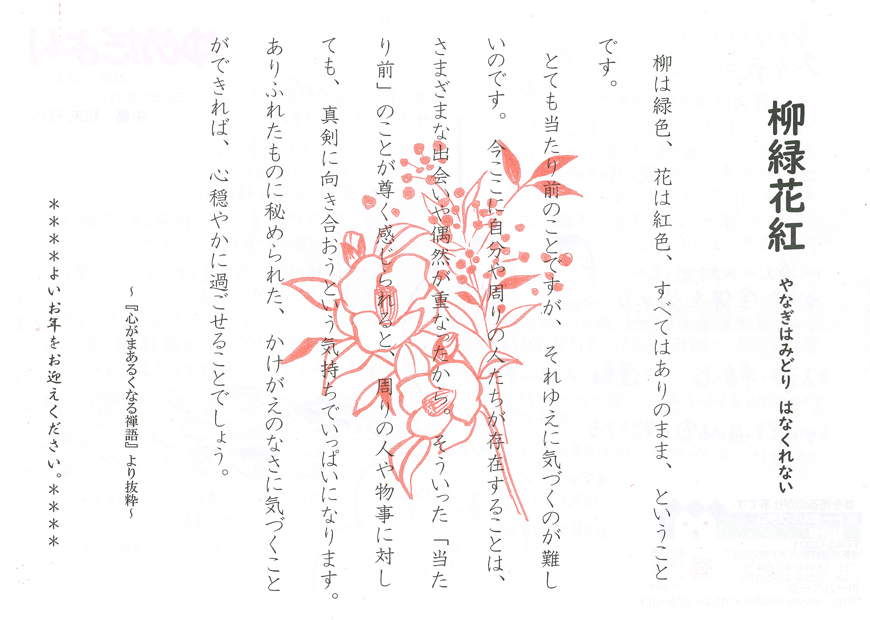 柳緑花紅 やなぎはみどり はなくれない
柳は緑色、花は紅色、すべてはありのまま、ということ
です。
とても当たり前のことですが、それゆえに気づくのが難し
いのです。今ここに自分や周りの人たちが存在することは、
さまざまな出会いや偶然が重なったから。そういった「当た
り前」のことが尊く感じられると、周りの人や物事に対し
ても、真剣に向き合おうという気持ちでいっぱいになります。
ありふれたものに秘められた、かけがえのなさに気づくこと
ができれば、心穏やかに過ごせることでしょう。
～『心がまあるくなる禅語』より抜粋～
＊＊＊＊よいお年をお迎えください。＊＊＊＊